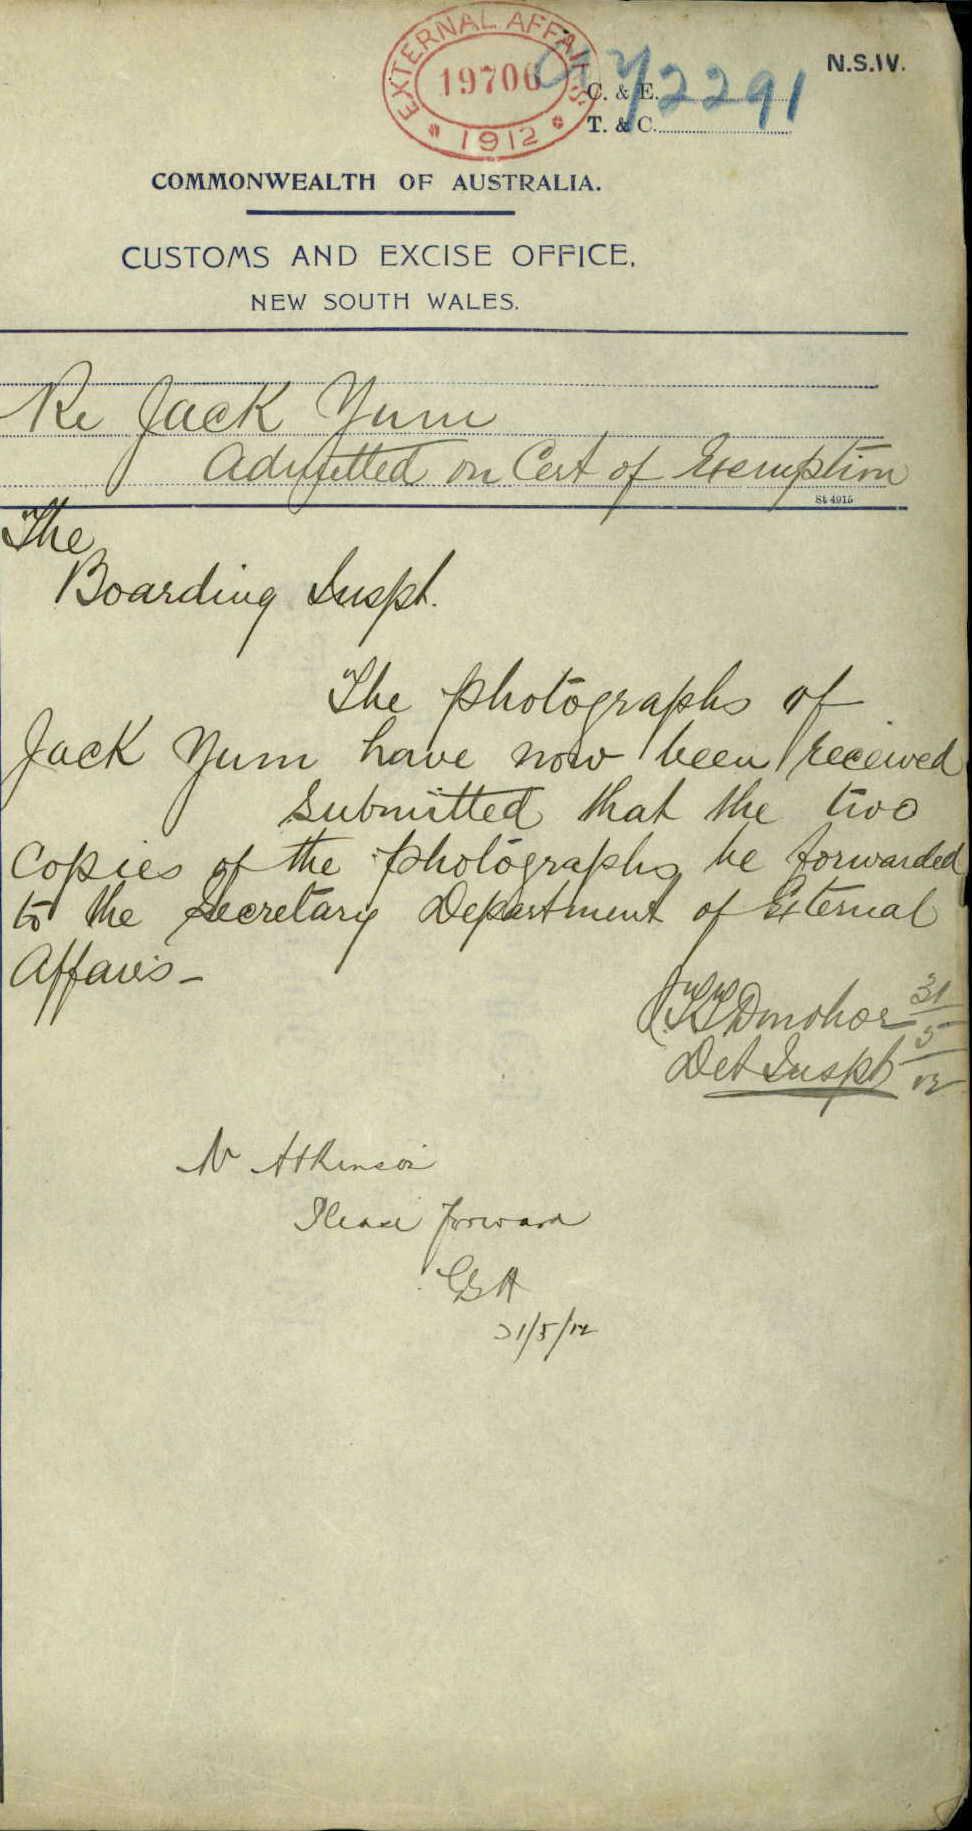 EXTERNAL AFFAIRS
19706
1912
N.S.W.
C. & E. 2291
T. & C.
COMMONWEALTH OF AUSTRALIA.
CUSTOMS AND EXCISE OFFICE,
NEW SOUTH WALES.
Re Jack Yum
Admitted on Cert of Exemption
St 4915
The
Boarding Inspt.
The photographs of
Jack Yum have now been received
Submitted that the two
Copies of the photographs be forwarded
to the Secretary Department of External
Affairs -
Donohoe 31/5/12
Det Inspt
Mr Atkinson
Please forward
31/5/12